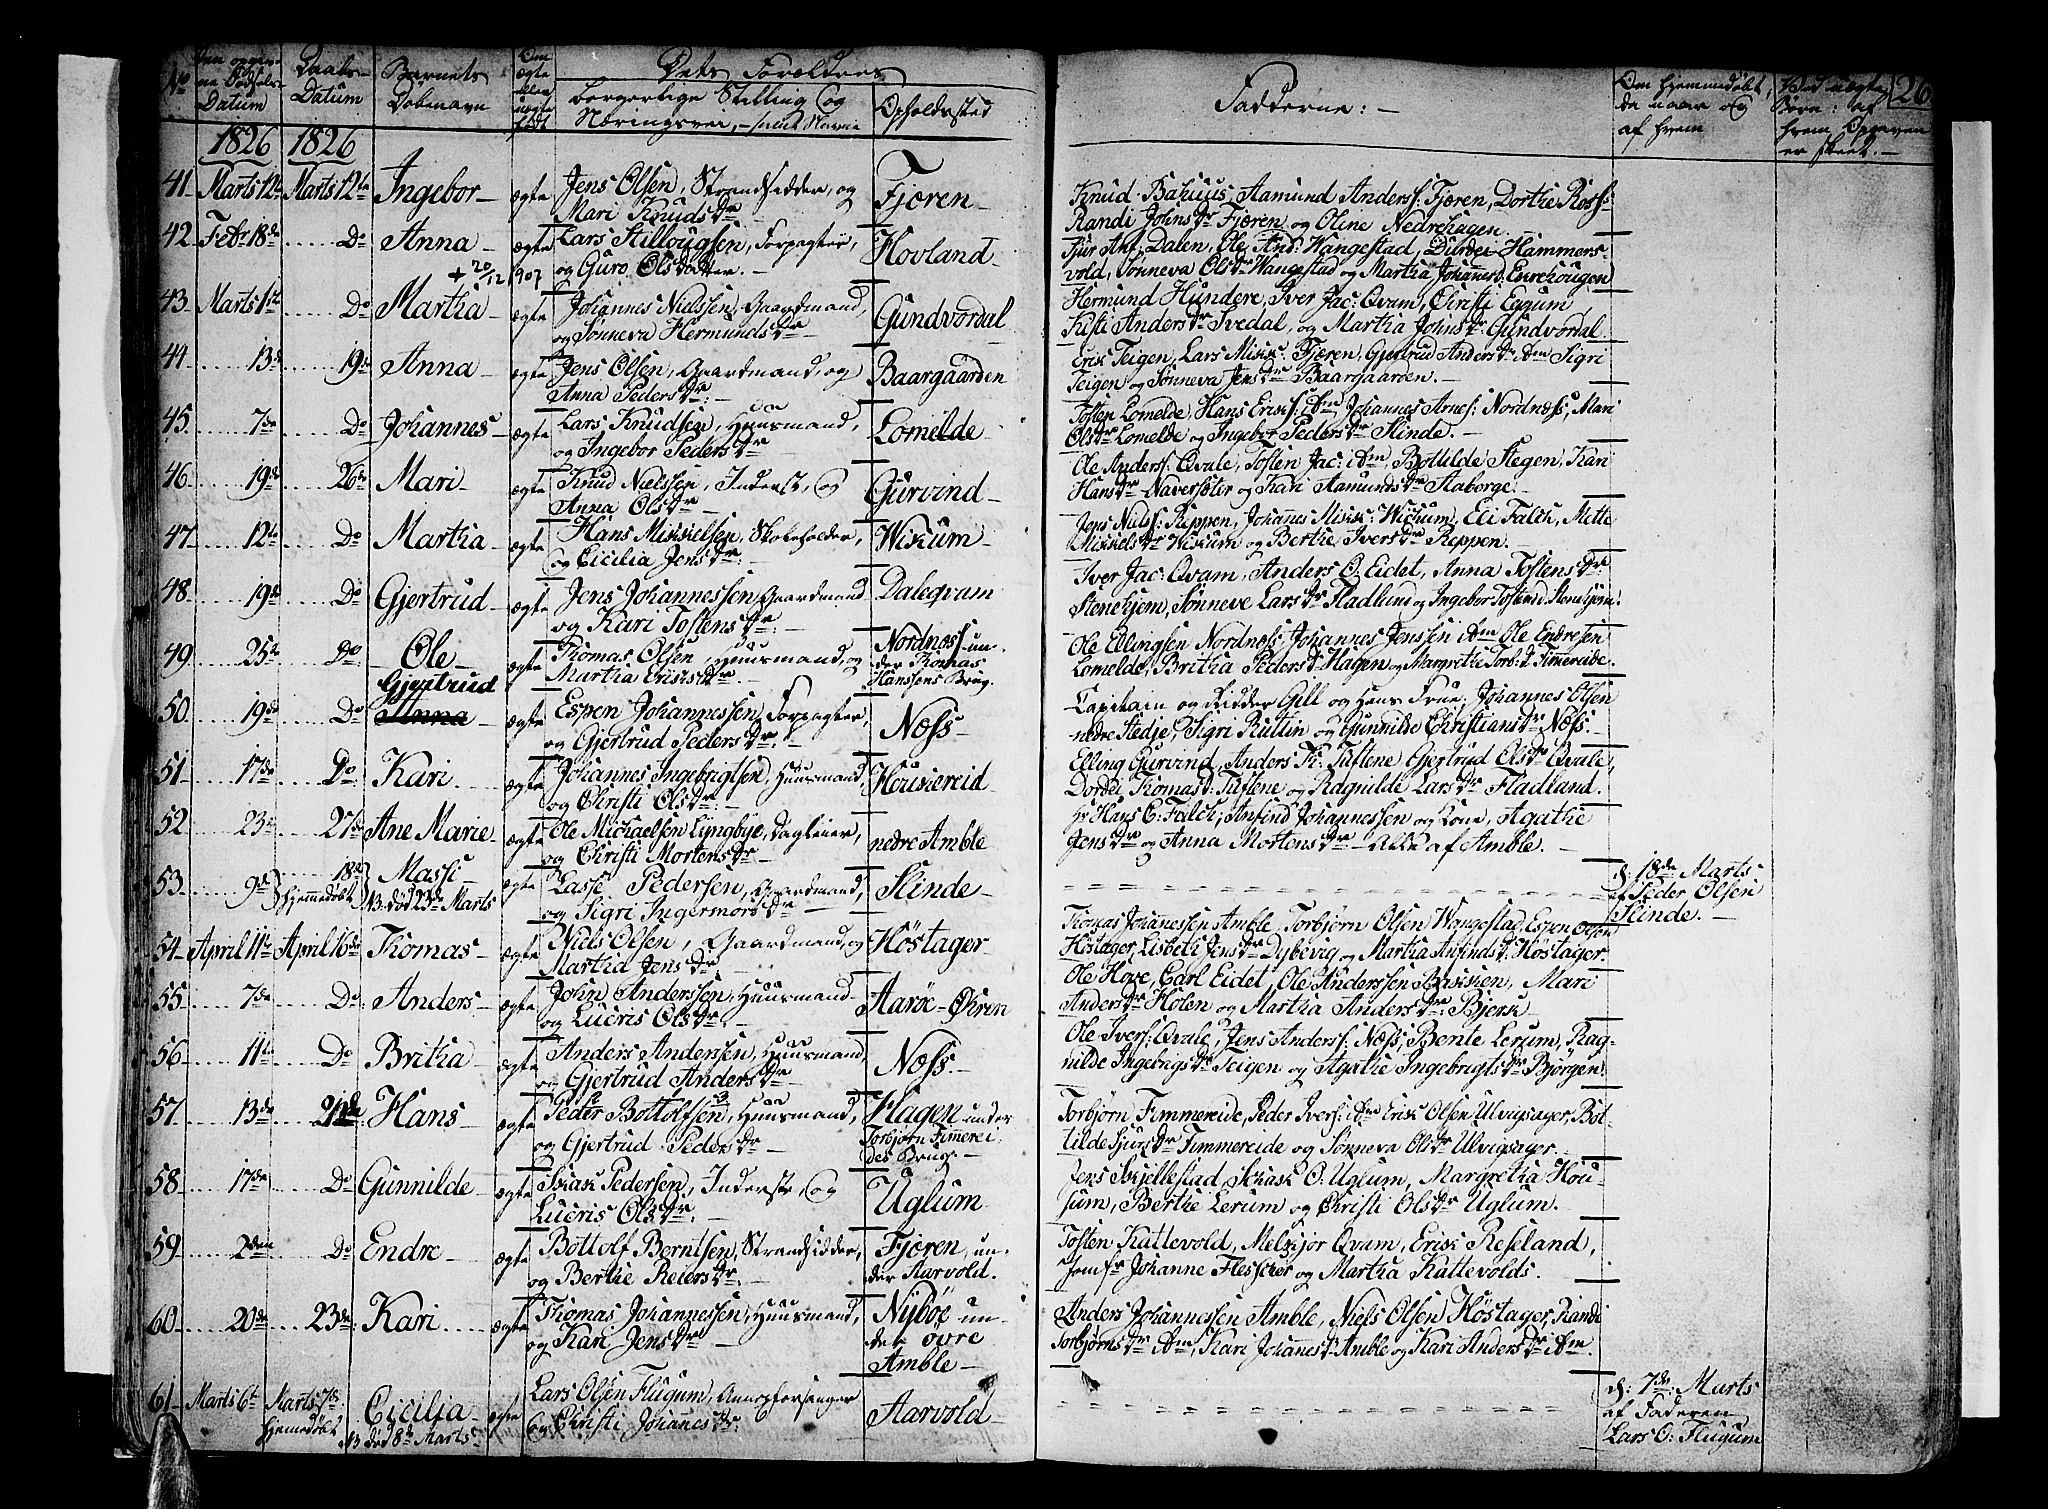 No Datum Daabs Datum Barnets Døbenavn Om ægte eller uægte født Dets Forældres
borgerlige Stilling og Næringsvei, samt Navne Opholdssted Fadderne: Om hjemmedøbt, da naar og af hvem 26
1826 1826
41 Marts 12te Marts 12te Ingebor ægte Jens Olsen, Strandsidder, og
Mari Knudsdr Fjæren
Knud Bahuus, Aamund Anders: Fjæren, Dorthe Ross
Randi Johnsdr Fjæren og Oline Nedrehagen.
42 Febr 18de Do Anna ægte Lars Stillougsen, Forpagter,
og Guro Olsdatter. Hovland
Sjur Ant: Dalen, Ole And: Wangestad, Durdei Hammers-
vold, Sønneva Olsdr Wangestad og Martha Johannesd: Eirehougen
+ 20/12 1907
43 Marts 1ste Do Martha ægte Johannes Nielssen, Gaardmand,
og Sønneva Hermundsdr Gundvordal
Hermund Hundere, Iver Jac: Qvam, Christi Eggum
Kisti Andersdr Svedal, og Martha Johnsdr: Gundvordal
44 13de 19de Anna ægte Jens Olsen, Gaardmand, og
Anna Pedersdr: Baargaarden
Erik Teigen, Lars Mikk: Fjæren, Gjertrud Andersdr ibm Sigri
Teigen og Sønneva Jensdr Baargaarden.
45 7de Do Johannes ægte Lars Knudsen, Huusmand,
og Ingebor Pedersdr Lomelde
Tosten Lomelde, Hans Eriks: ibm Johannes Arnes: Nordnæss, Mari
Olsdr Lomelde og Ingebor Pedersdr Slinde.
46 19de 26de Mari ægte Knud Nielssen, Inderst, og
Anna Olsdr Gurvind
Ole Anders: Qvale, Tosten Jac: ibm, Botilde Stegen, Kari
Hansdr Naversøter og Kari Aamundsdr Aaberge.
47 12te Do Martha ægte Hans Mikkelsen, Skoleholder,
og Cicilia Jensdr: Wikum
Jens Niels: Reppen, Johannes Mikk: Wikum, Eli Falch, Mette
Mikkelsdr Wikum og Berthe Iversdr Reppen.
48 19de Do Gjertrud ægte Jens Johannessen, Gaardmand
og Kari Tostensdr: Daleqvam
Iver Jac: Qvam, Anders O. Eidet, Anna Tostensdr
Stenehjem, Sønneve Larsdr Fladlund og Ingebor Tostensd. Stenehjem.
49 25de Do Ole ægte Thomas Olsen, Huusmand, og
Martha Eriksdr Nordnæss un-
der Thomas
Hanssens Brug.
Ole Ellingsen Nordnæss, Johannes Jenssen ibm Ole Endresen
Lomelde, Britha Pedersd: Hagen og Margrethe Torb:d Timmereide.
Gjertrud
50 19de Do Anna ægte Espen Johannessen, Forpagter,
og Gjertrud Pedersdr: Næss
Capitain og Ridder Gill og Hans Frue, Johannes Olsen
nedre Stedje, Sigri Ruttin og Gunnilde Christiansdr Næss.
51 17de Do Kari ægte Johannes Ingebrigtsen, Huusmand,
og Christi Olsdr: Houkereid
Elling Gurvind, Anders Th: Tuftene Gjertrud Olsdr Qvale,
Dordei Thomasd: Tuftene og Ragnilde Larsdr Fladland.
52 23de 27de Ane Marie ægte Ole Michaelsen Lyngbye, Dagleier,
og Christi Mortensdr nedre Amble
Hr Hans C: Falch, Anfind Johannessen og Kone, Agathe
Jensdr og Anna Mortensdr — Alle af Amble.
53 9de 18de hjemmedøbt Massi NB: død 23de Marts ægte Lasse Pedersen, Gaardmand,
og Sigri Ingermorsdr Slinde
d: 18de Marts
af Peder Olsen
Slinde.
54 April 11te April 16de Thomas ægte Niels Olsen, Gaardmand, og
Martha Jensdr: Høstager
Thomas Johanessen Amble, Torbjørn Olsen Wangestad, Espen Olsen
Høstager, Lisbeth Jensdr Dybevig og Martha Anfindsd: Høstager.
55 7de Do Anders ægte John Anderssen, Huusmand
og Lucris Olsdr. Aarøe-Øiren
Ole Hove, Carl Eidet, Ole Anderssen Bakken, Mari
Andersdr Holen og Martha Andersdr: Bjerk
56 11te Do Britha ægte Anders Anderssen, Huusmand,
og Gjertrud Andersdr Næss
Ole Ivers: Qvale, Jens Anders: Næss, Bente Lerum, Rag-
nilde Ingebrigsdr Teigen og Agathe Ingebrigtsdr Bjørgen
57 13de 21de Hans ægte Peder Bottolfsen, Huusmand,
og Gjertrud Pedersdr Hagen under
Torbjørn Timerei-
des Brug.
Torbjørn Timmereide, Peder Ivers: ibm Erik Olsen Ulvigsager, Bot-
tilde Sjursdr Timmereide og Sønneva Olsdr Ulvigsager.
58 17de Do Gunnilde ægte Isak Pedersen, Inderste, og
Lucris Olsdr: Uglum
Jens Skjellestad, Isak O: Uglum, Margretha Hou-
sum, Berthe Lerum og Christi Olsdr Uglum.
59 2den Do Endre ægte Bottolf Berntsen, Strandsidder,
og Berthe Reiersdr: Fjæren, un-
der Aarvold.
Tosten Kattevold, Melkjør Qvam, Erik Reseland,
Jomfr Johanne Flescher og Martha Kattevolds.
60 20de 23de Kari ægte Thomas Johannessen, Huusmand,
og Kari Jensdr Nybøe un-
der øvre
Amble
Anders Johannessen Amble, Niels Olsen Høstager, Randi
Torbjørnsdr ibm, Kari Johanesd: Amble og Kari Andersdr ibm.
61 Marts 6te Marts 7de hjemmedøbt Cicilia NB død 8de Marts ægte Lars Olsen Flugum,
og Christi Johanesdr: Aarvold
d: 7de Marts
af Faderen
Lars O: Flugum